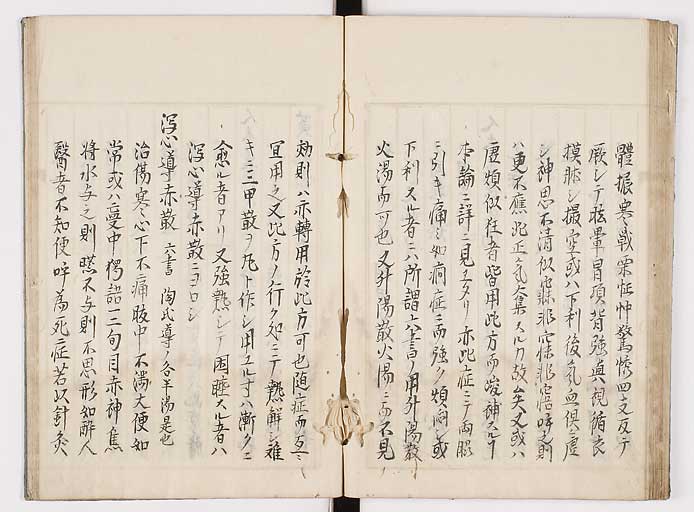 體振寒戰栗怔忡驚惕四支反テ
厥シテ眩暈冒項背強直視循衣
摸牀シ撮空或ハ下利後氣血俱虛
シ神思不清似寐非寐非寤呼之則
ハ更不應此正氣
虛煩似狂者皆用此方而
本論ニ詳ニ見エタリ亦此症ニテ両脇
ニ引キ痛ミ如癇症ニ而強ク煩悶シ或
下利スル者ニハ所謂六書ノ用升陽散
火湯而可也又升陽散火湯ニ而不見
効則ハ亦轉用於此方可也随症而互ニ
宜用之又此方ノ行ク処ニテ熱解シ難
キニ三甲散ヲ凡ト作シ用ユル寸ハ漸クニ
愈ル者アリ又強熱シテ困睡スル者ハ
瀉心導赤散ニヨロシ
瀉心導赤散 六書 陶氏導ノ各半湯是也
治傷寒心下不痛腹中不満大便如
常或ハ夢中獨語一二句目赤神焦
将水与之則嚥不与則不思形如醉人
醫者不知便呼為死症若以針灸